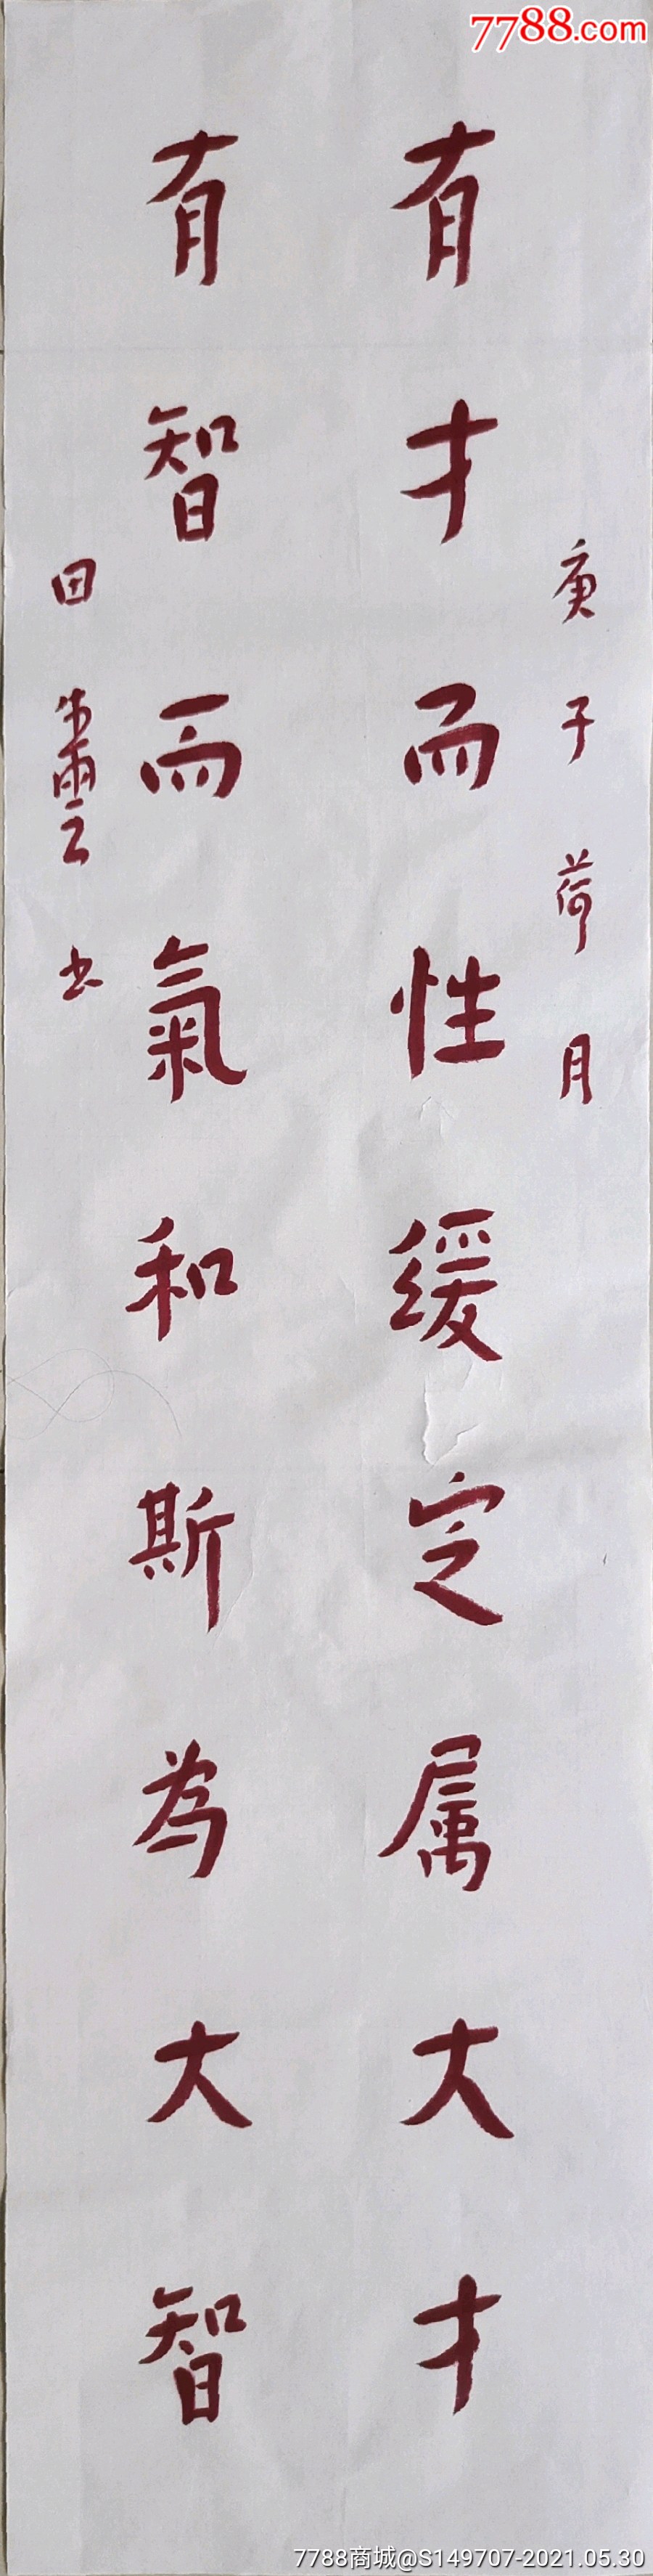 7788.com
庚子荷月
有才而性缓定属大才
有智而氣和斯為大智
田 书
7788商城@S149707-2021.05.30